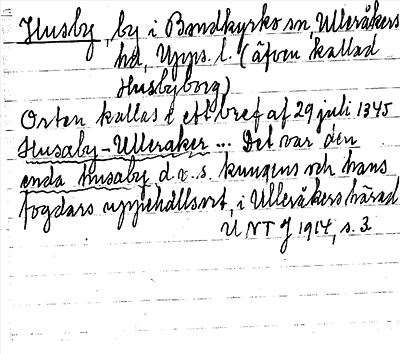 Husby, by i Bondkyrko sn, Ulleråkers
hd, Upps. l. (äfven kallad
Husbyborg)
Orten kallas i ett bref af 29 juli 1345
Husaby-Ulleraker ... Det var den
enda husaby d.v.s. kungens och hans
fogdars uppehållsort, i Ulleråkers härad
U N T J 1914, s. 3.